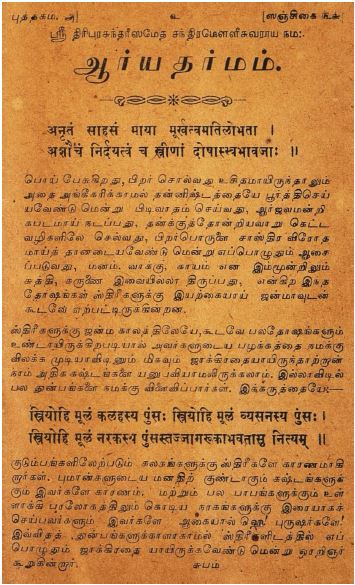 புத்தகம். அ] ௳ [ஸஞ்சிகை
ஸ்ரீ திரிபுரசுந்தரீஸமேத சந்திரமௌளீசுவராய நம:
ஆர்யதர்மம்.
अनृतं साहसं माया मूर्खत्वमतिलोभता ।
अशौचं निर्दयत्वं च स्त्रीणां दोषास्स्वभावजाः ॥
பொய் பேசுகிறது, பிறர் சொல்வது உசிதமாயிருந்தாலும்
அதை அங்கீகரிக்காமல் தன்னிஷ்டத்தையே பூர்த்திசெய்
யவேண்டுமென்று பிடிவாதம் செய்வது, ஆர்ஜவமன்றி
கபடமாய் நடப்பது, தனக்குத்தோன்றியவாறு கெட்ட
வழிகளிலே செல்வது, பிறர்பொருளை சாஸ்திர விரோத
மாய்த் தானடையவேண்டு மென்று எப்பொழுதும் ஆசை
ப்படுவது, மனம். வாக்கு. காயம் என இம்மூன்றிலும்
சுத்தி, கருணை இவையில்லா திருப்பது, என்கிற இந்த
தோஷங்கள் ஸ்திரீகளுக்கு இயற்கையாய் ஜன்மாவுடன்
கூடவே ஏற்பட்டிருக்கின்றன.
ஸ்திரீகளுக்கு ஜன்ம காலத்திலேயே, கூடவே பலதோஷங்களும்
உண்டாயிருக்கிறபடியால் அவர்களுடைய பழக்கத்தை நமக்கு
விலக்க முடியாவிடினும் மிகவும் ஜாக்ரதையாயிருந்தாற்றான்
நாம் அதிக கஷ்டங்களை யனுபவியாமலிருக்கலாம். இல்லாவிடில்
பல துன்பங்களை நமக்கு விளைவிப்பார்கள். இக்கருத்தையே:—
स्त्रियोहि मूलं कलहस्य पुंसः स्त्रियोहि मूलं व्यसनस्य पुंसः ।
स्त्रियोहि मूलं नरकस्य पुंसस्तज्जागरूकाभवतासु नित्यम् ॥
குடும்பங்களிலேற்படும் கலகங்களுக்கு ஸ்திரீகளே காரணமாகி
றார்கள். புமான்களுடைய மனதிற் குண்டாகும் கஷ்டங்களுக்
கும் இவர்களே காரணம். மற்றும் பல பாபங்களுக்கும் உள்
ளாக்கி பரலோகத்திலும் கொடிய நரகங்களுக்கு இரையாகச்
செய்பவர்களும் இவர்களே அகையால் ஹே புருஷர்களே!
இவ்வித துன்பங்களுக்காளாகாமல் ஸ்திரீகளிடத்தில் எப்
பொழுதும் ஜாக்கிரதை யாயிருக்கவேண்டு மென்று ஓரறிஞர்
கூறுகின்றார். சுபம்